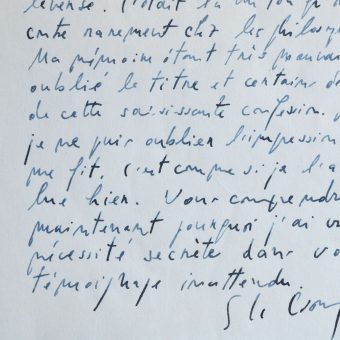 contre rarement chez les philosop
Ma mémoire étant très mauvai
oublié le titre et certains dé
de cette saisissante confession.
je ne puis oublier l'impression
me fit. C'est comme si je l'a
lue hier. Vous comprendr
maintenant pourquoi j'ai v
nécessité secrète dans vo
témoignage inattendu.